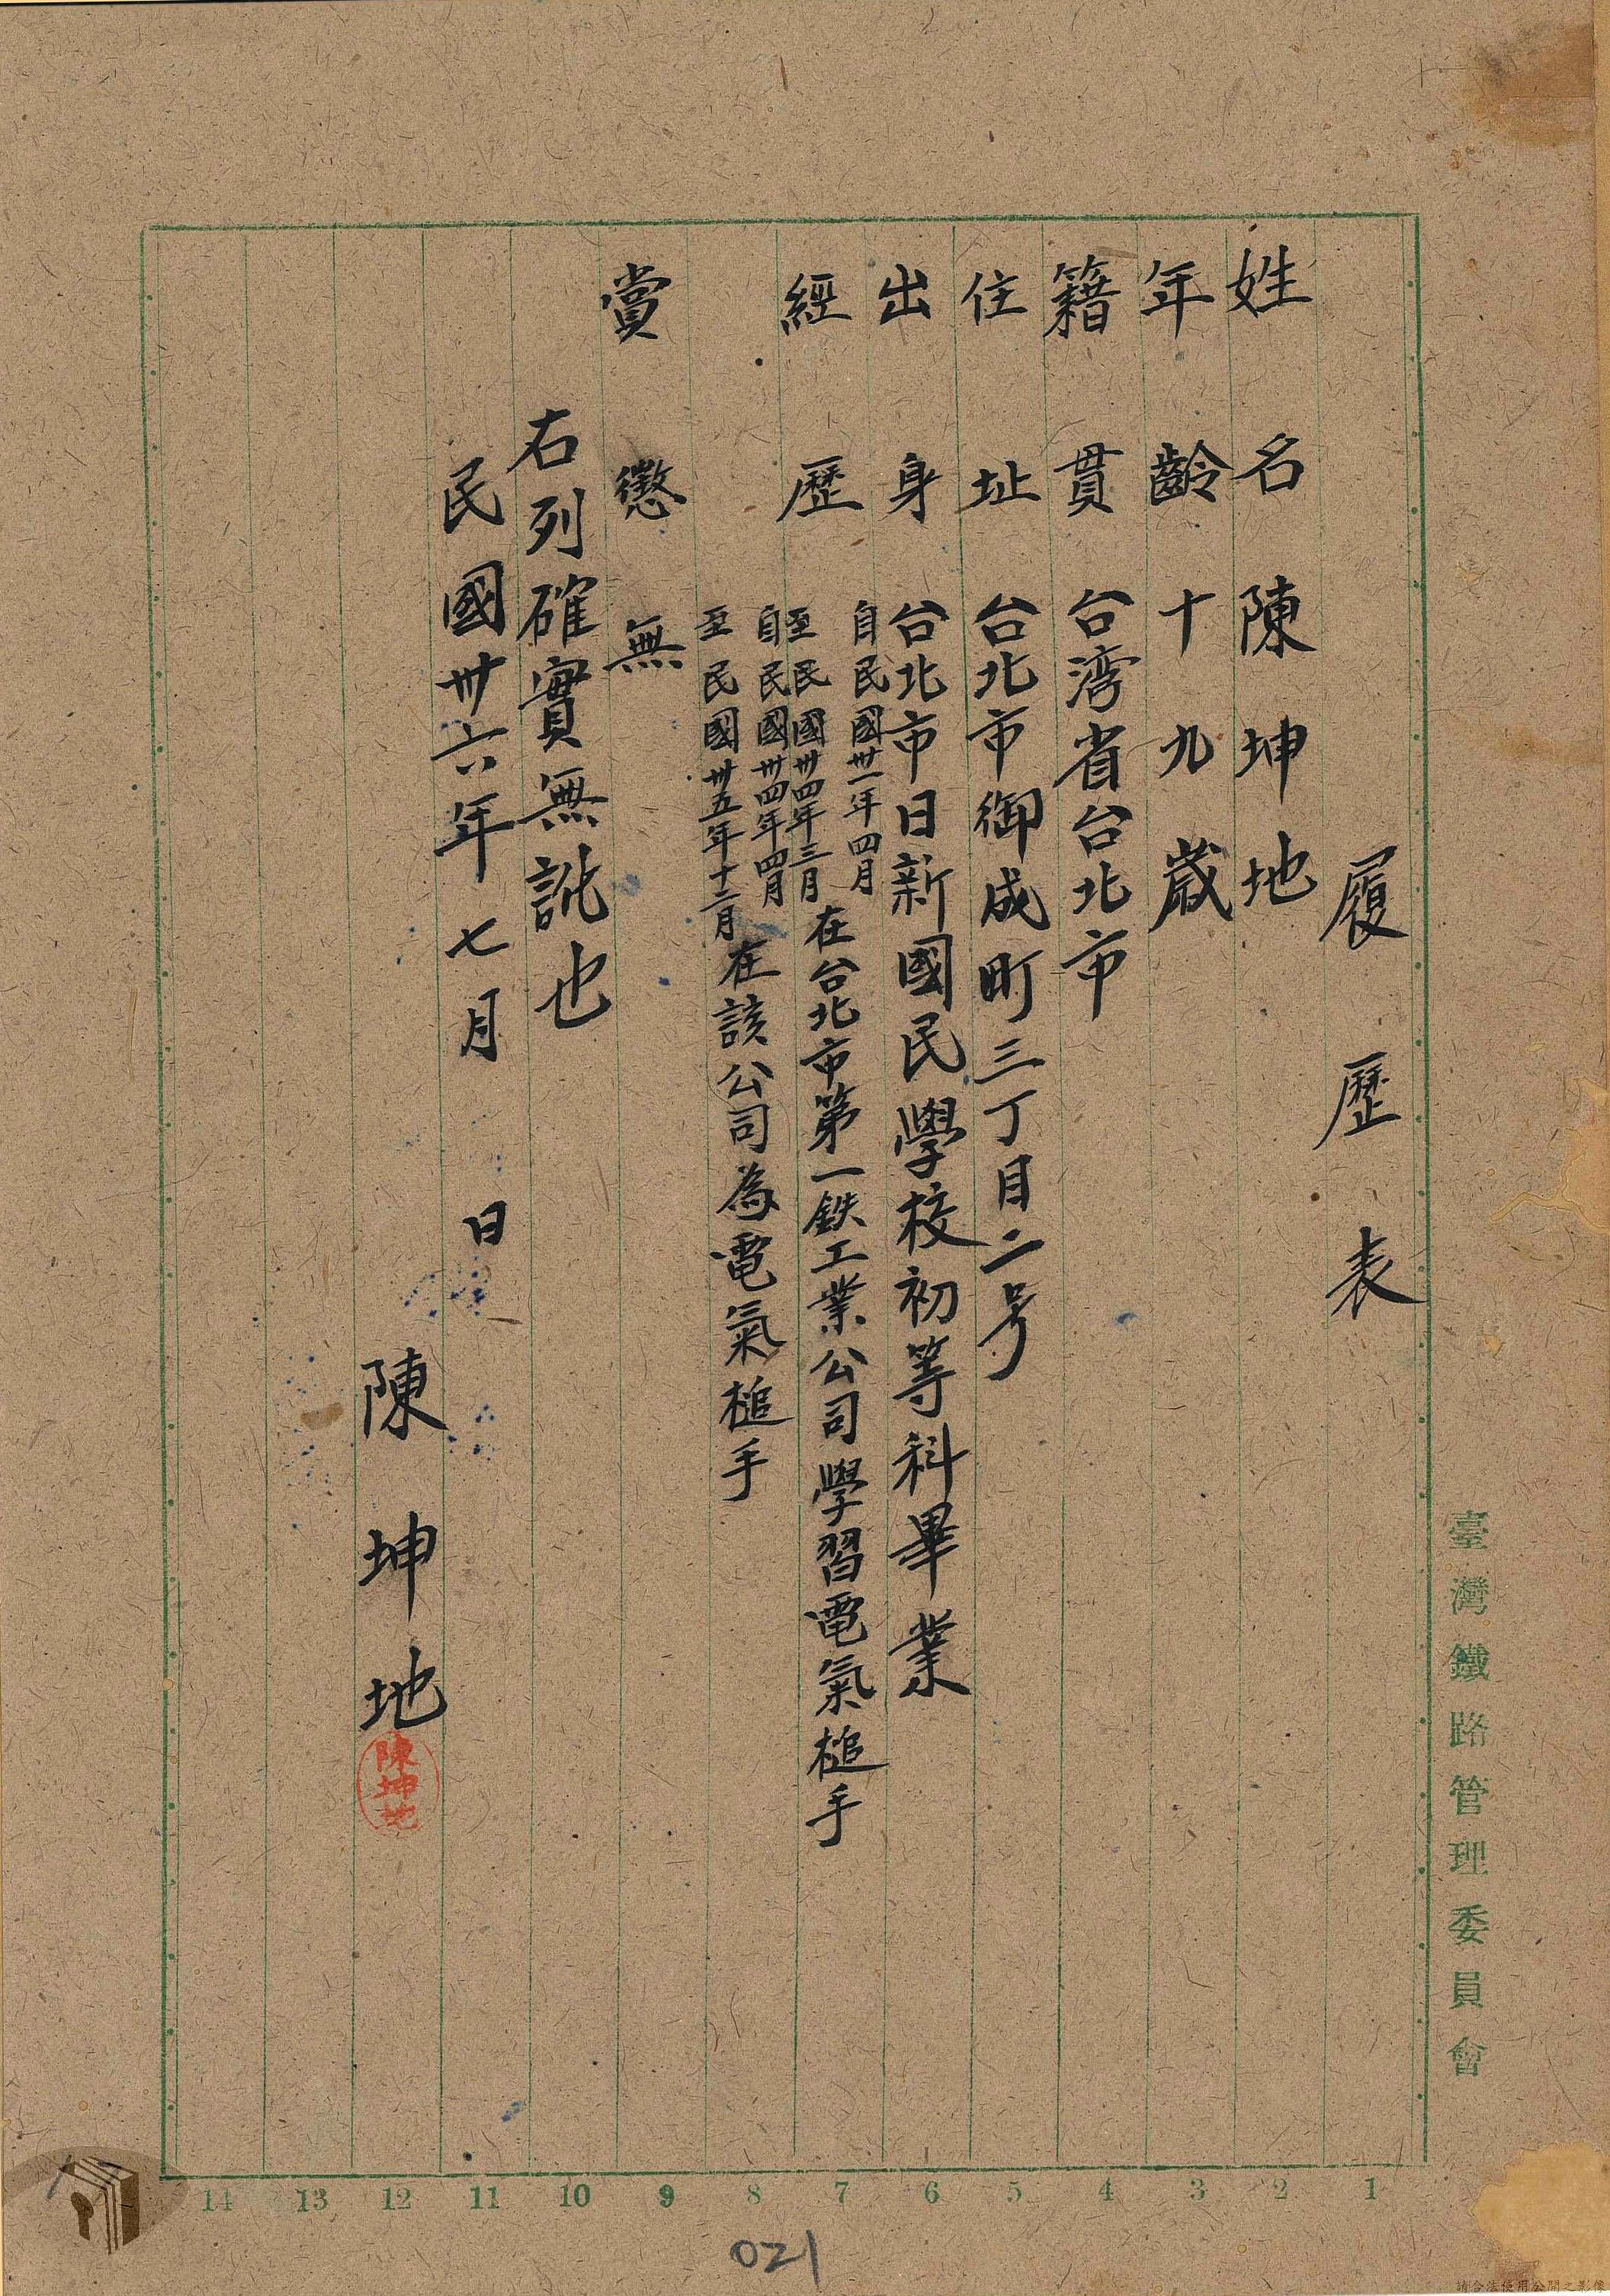 履歷表
姓名 陳坤地
年齡 十九歲
籍貫 台湾省台北市
住址 台北市御成町三丁目二号
出身 台北市日新國民學校初等科畢業
經歷 自民國卅一年四月
至民國卅四年三月 在台北市第一鉄工業公司學習電氣槌手
自民國卅四年四月
至民國卅五年十二月 在該公司為電氣槌手
賞懲 無
右列確實無訛也
民國卅六年七月 日
陳坤地
陳坤地
臺灣鐵路管理委員會
14 13 12 11 10 9 8 7 6 5 4 3 2 1
021
請合法使用公開之影像